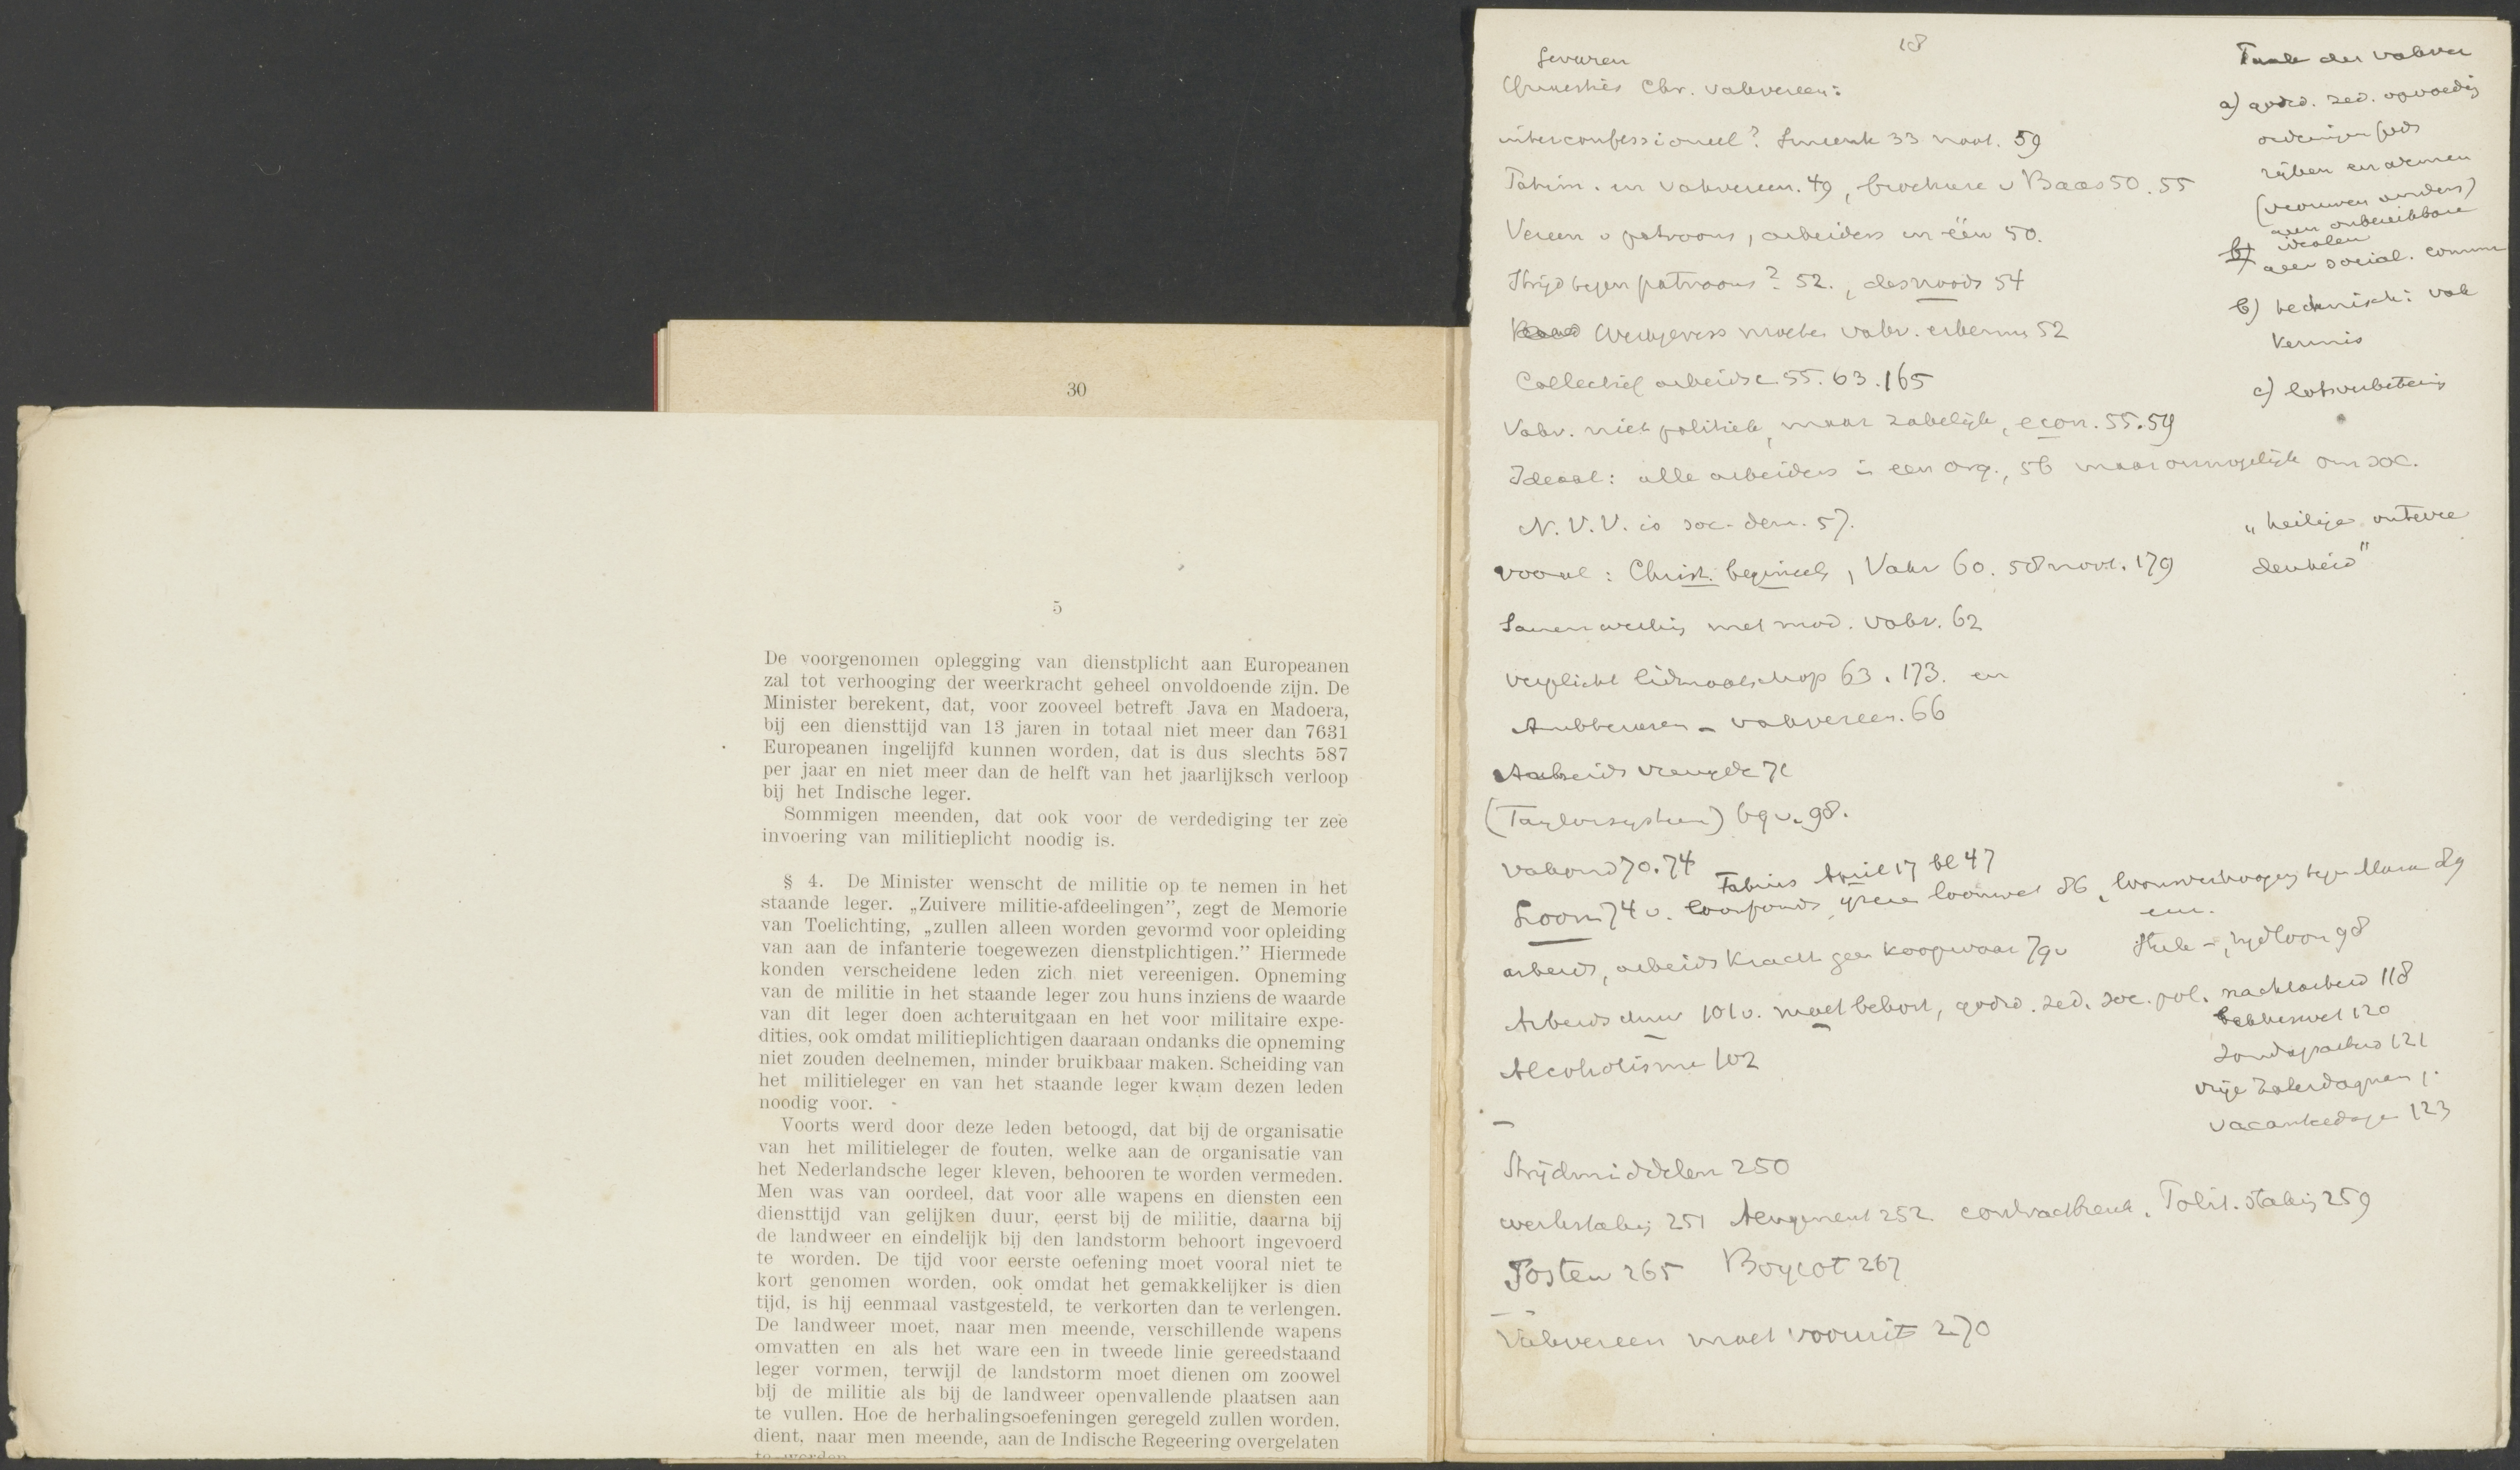 30
5
De voorgenomen oplegging van dienstplicht aan Europeanen
zal tot verhooging der weerkracht geheel onvoldoende zijn. De
Minister berekent, dat, voor zooveel betreft Java en Madoera,
bij een diensttijd van 13 jaren in totaal niet meer dan 7631
Europeanen ingelijfd kunnen worden, dat is dus slechts 587
per jaar en niet meer dan de helft van het jaarlijksch verloop
bij het Indische leger.
Sommigen meenden, dat ook voor de verdediging ter zee
invoering van militieplicht noodig is.
§ 4. De Minister wenscht de militie op te nemen in het
staande leger. „Zuivere militie-afdeelingen”, zegt de Memorie
van Toelichting, „zullen alleen worden gevormd voor opleiding
van aan de infanterie toegewezen dienstplichtigen.” Hiermede
konden verscheidene leden zich niet vereenigen. Opneming
van de militie in het staande leger zou huns inziens de waarde
van dit leger doen achteruitgaan en het voor militaire expe-
dities, ook omdat militieplichtigen daaraan ondanks die opneming
niet zouden deelnemen, minder bruikbaar maken. Scheiding van
het militieleger en van het staande leger kwam dezen leden
noodig voor.
Voorts werd door deze leden betoogd, dat bij de organisatie
van het militieleger de fouten, welke aan de organisatie van
het Nederlandsche leger kleven, behooren te worden vermeden.
Men was van oordeel, dat voor alle wapens en diensten een
diensttijd van gelijken duur, eerst bij de militie, daarna bij
de landweer en eindelijk bij den landstorm behoort ingevoerd
te worden. De tijd voor eerste oefening moet vooral niet te
kort genomen worden, ook omdat het gemakkelijker is dien
tijd, is hij eenmaal vastgesteld, te verkorten dan te verlengen.
De landweer moet, naar men meende, verschillende wapens
omvatten en als het ware een in tweede linie gereedstaand
leger vormen, terwijl de landstorm moet dienen om zoowel
bij de militie als bij de landweer openvallende plaatsen aan
te vullen. Hoe de herhalingsoefeningen geregeld zullen worden.
dient, naar men meende, aan de Indische Regeering overgelaten
te worden
18
Gevaren
Chr. vakvereen:
interconfessioneel? Smeenk 33 noot. 59
Patrim. en vakvereen. 49, brochure v Baas 50. 55
Vereen v patroons, arbeiders in één 50.
Strijd tegen patroons? 52., desnoods 54
Werkgevers moeten vakv. erkennen 52
Collectief arbeidsc. 55. 63. 165
Vakv. niet politiek, maar zakelijk, econ. 55. 59
Ideaal: alle arbeiders in een org., 56 maar onmogelijk om soc.
N. V. V. is soc-dem. 57.
vooral: Christ. beginsels, Vakv 60. 58 noot. 179
Samenwerking met mod. vakv. 62
verplicht lidmaatschap 63. 173. en
Ambtenaren - vakvereen. 66
Arbeidsvreugde 71
(Taylorsysteem) bqv. 98.
Vakond 70. 74
Fabius April 17 bl 47
Loon 74 v. loonfonds, ijzeren loonwet 86, loonsverhooging tegen Marx 89
arbeid, arbeidskracht geen koopwaar 79 v
Stuk-, tijdloon 98
Arbeidsduur 101 v. moet bekort, godsd. zed. soc. pol.
Alcoholisme 102
nachtarbeid 118
bakkerswet 120
Zondagsarbeid 121
vrije Zaterdagnam ,.
vacantiedagen 123
Strijdmiddelen 250
werkstaking 251 Arrangement 252 contractbreuk. Polit. staking 259
Posten 265 Boycot 267
Vakvereen moet vooruit 270
Taak der vakver
a) godsd. zed. opvoeding
ordeningen Gods
rijken en armen
(vrouwen anders)
geen onbereikbare
idealen
geen social. comm
b) technisch: vak
kennis
c) lotsverbetering
„heilige onTevre
denheid"